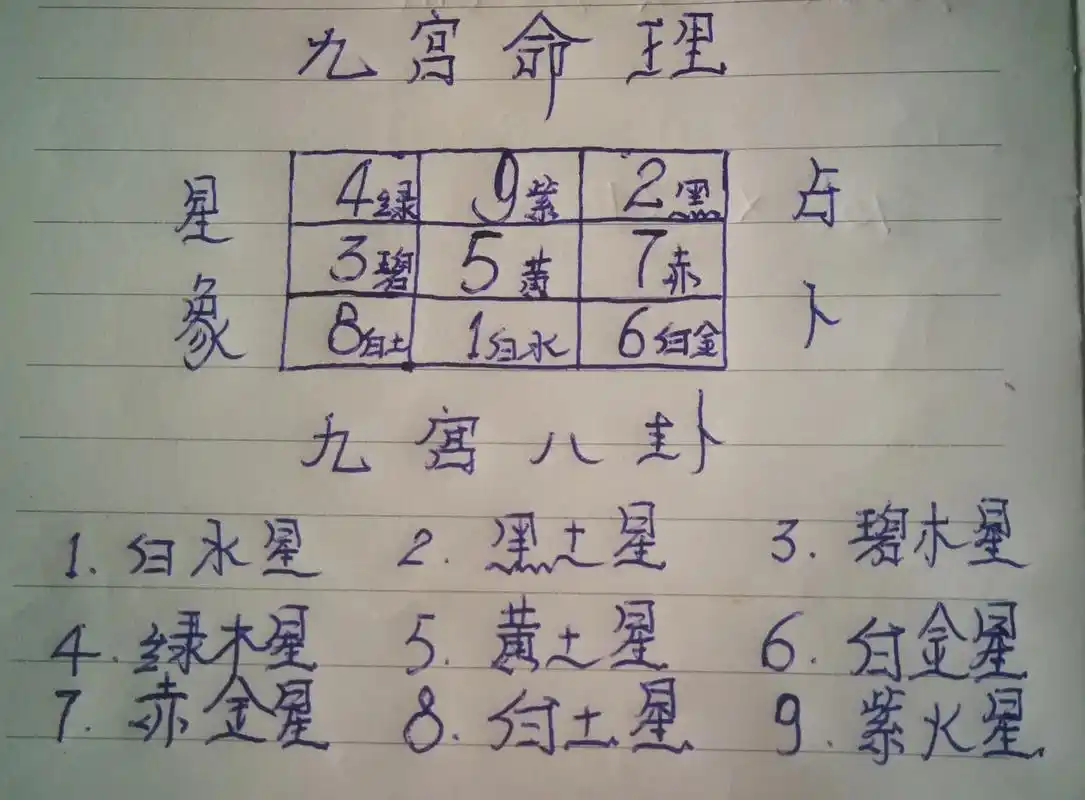 九宫命理
星象
4绿 9紫 2黑
3碧 5黄 7赤
8白土 1白水 6白金
占卜
九宫八卦
1. 白水星 2. 黑土星 3. 碧木星
4. 绿木星 5. 黄土星 6. 白金星
7. 赤金星 8. 白土星 9. 紫火星